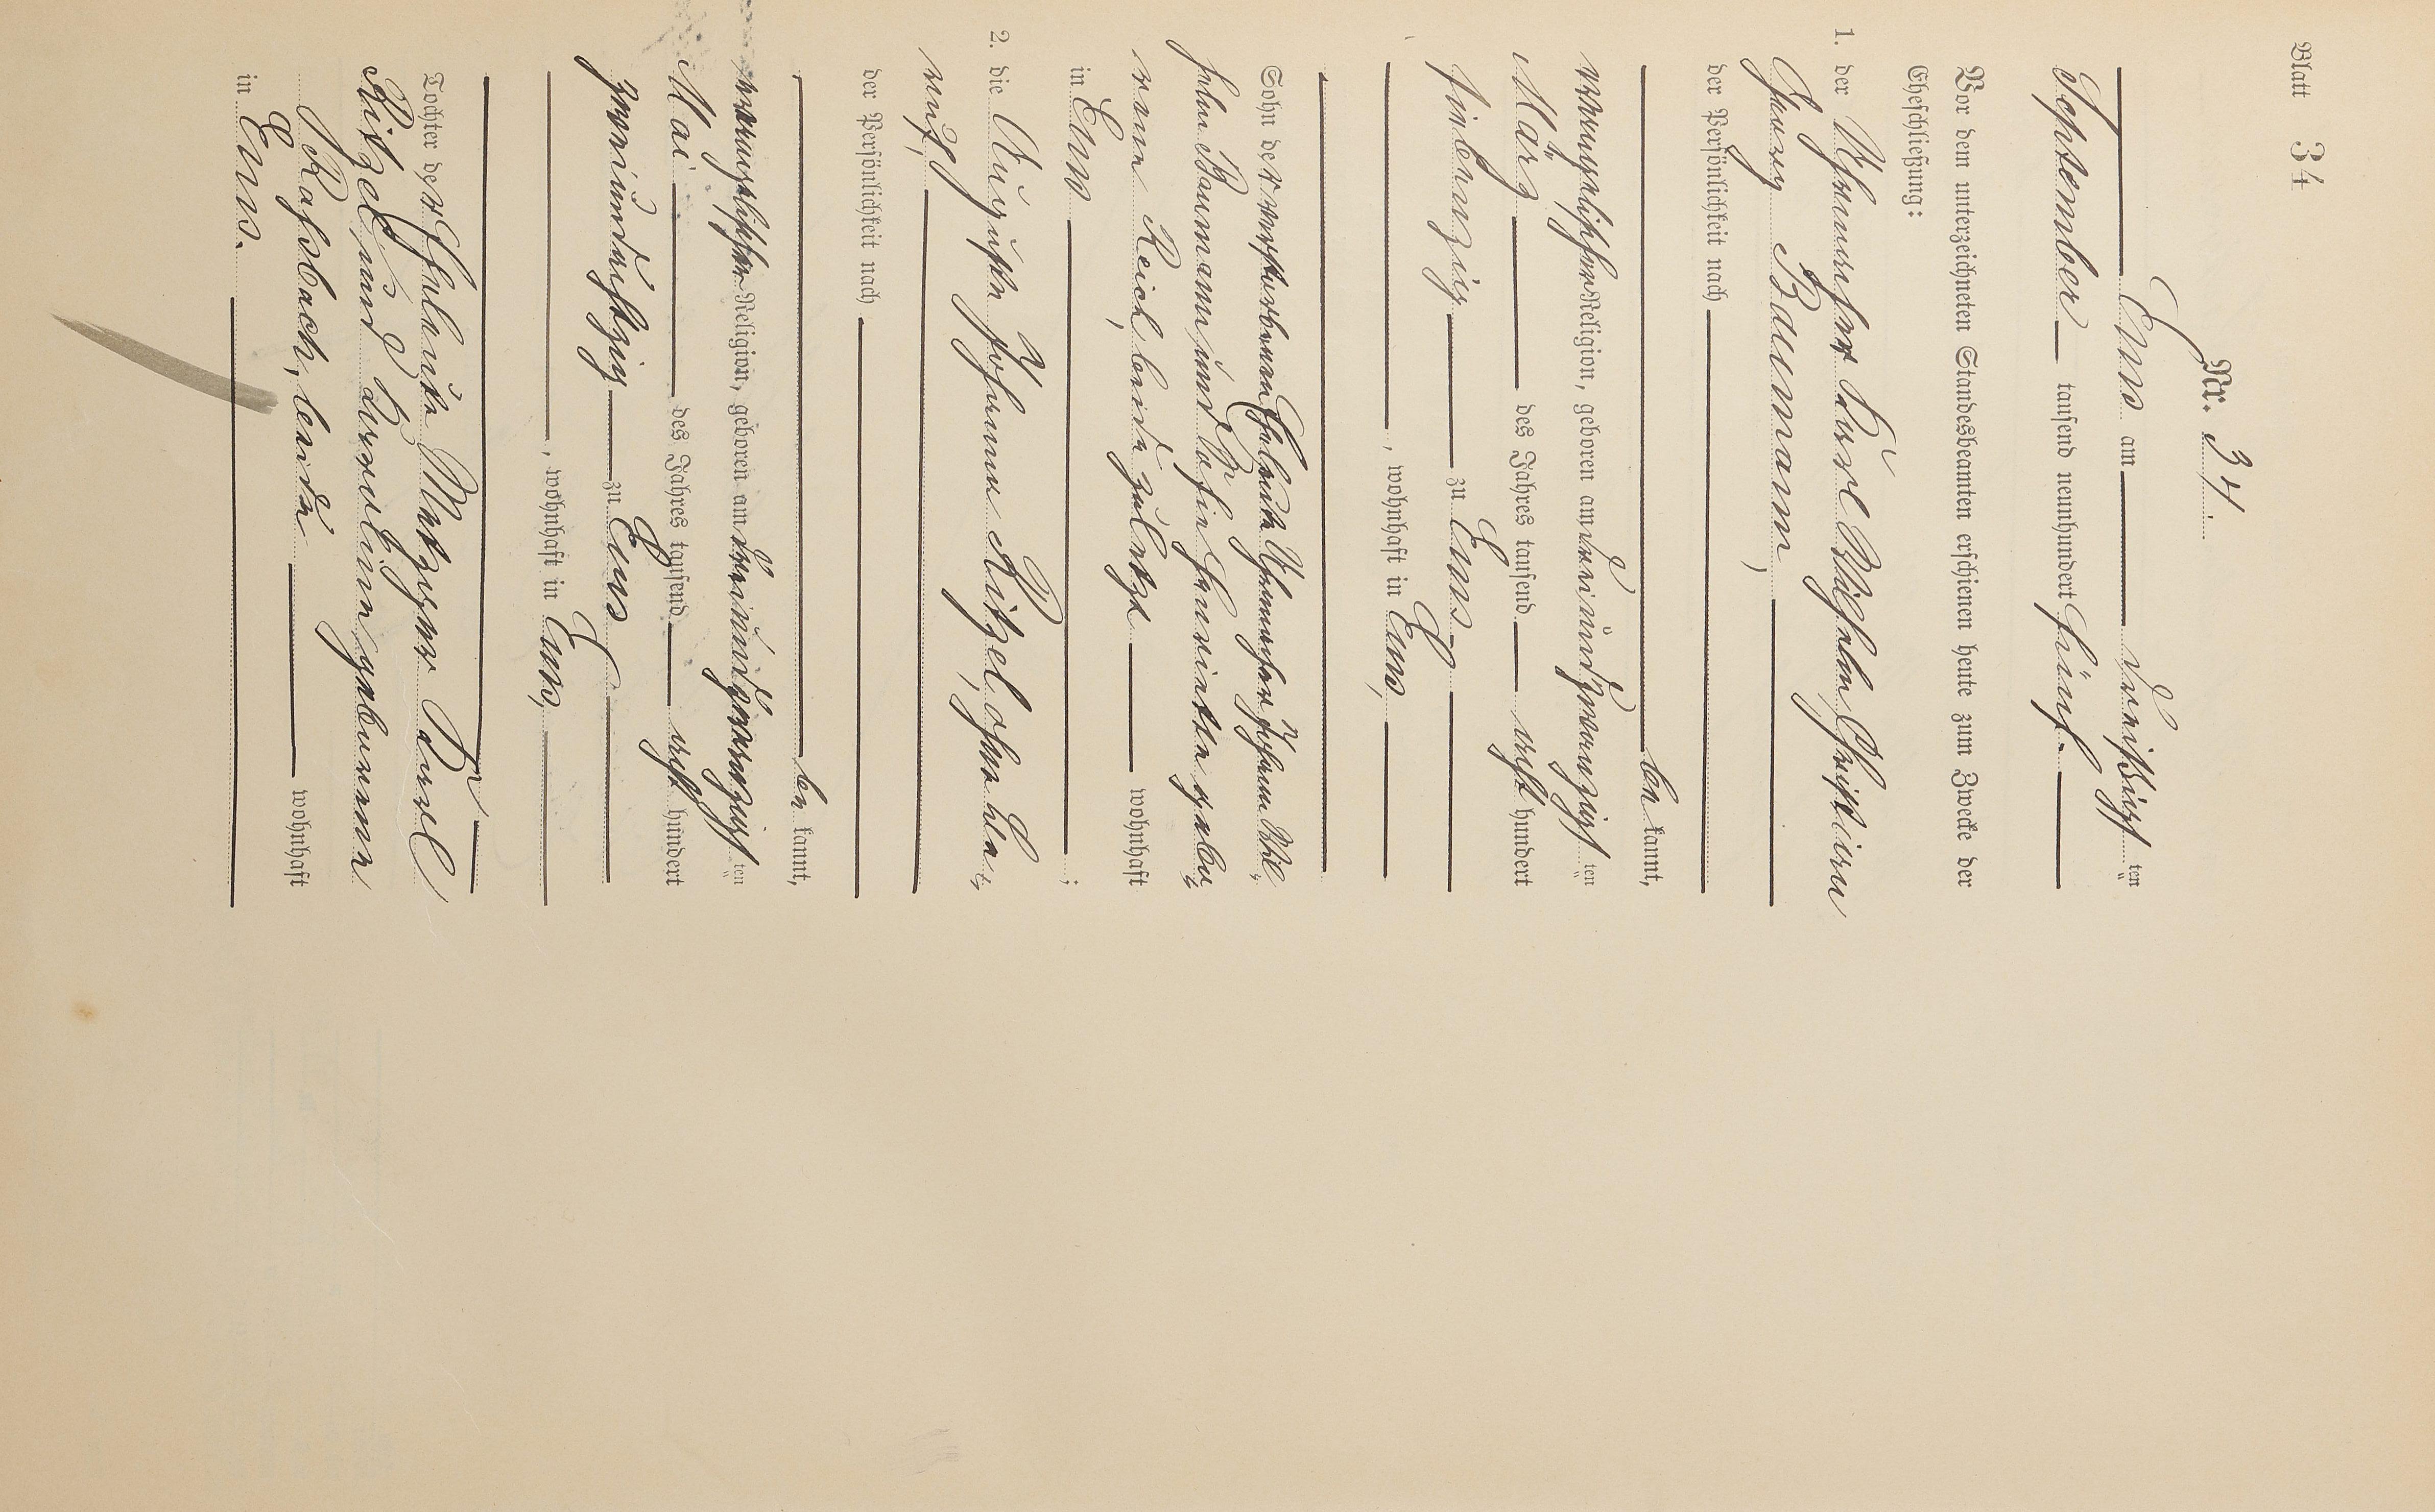 Blatt 34
Nr. 34.
Ems am dreißigsten
September tausend neunhundert fünf.
Vor dem unterzeichneten Standesbeamten erschienen heute zum Zwecke der
Eheschließung:
1. der Uhrmacher Karl Wilhelm Christian
Georg Baumann,
der Persönlichkeit nach
bekannt,
evangelischer Religion, geboren am dreiundzwanzigsten
März des Jahres tausend achthundert
siebenzig zu Ems
, wohnhaft in Ems,
Sohn der verstorbenen Eheleute Uhrmachers Johann Wil-
helm Baumann und Sofie Henriette gebo-
renen Reich, beide zuletzt wohnhaft
in Ems ;
2. die Auguste Johanna Kitzel, ohne Ge-
werbe,
der Persönlichkeit nach
bekannt,
evangelischer Religion, geboren am dreiundzwanzigsten
Mai des Jahres tausend achthundert
zweiundachtzig zu Ems
, wohnhaft in Ems,
Tochter der Eheleute Metzger Karl
Kitzel und Karoline geborenen
Rassbach, beide wohnhaft
in Ems.